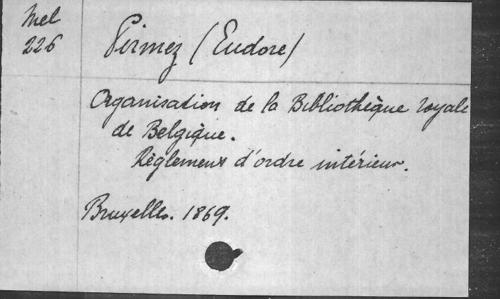 Mel
226
Pirmez (Eudore)
Organisation de la Bibliothèque royale
de Belgique.
Règlement d'ordre intérieur.
Bruxelles. 1869.